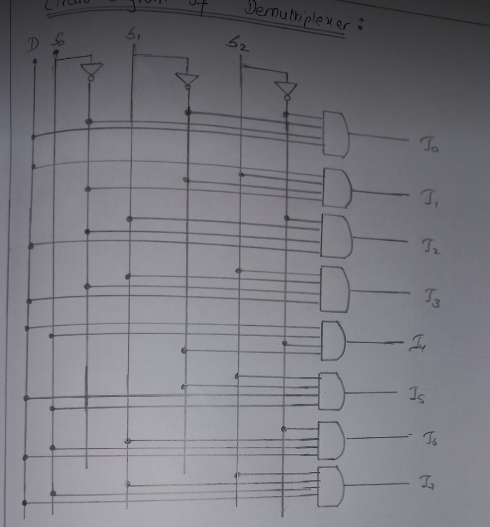 Circuit Diagram of Demultiplexer :
D S₀ S₁ S₂
I₀
I₁
I₂
I₃
I₄
I₅
I₆
I₇